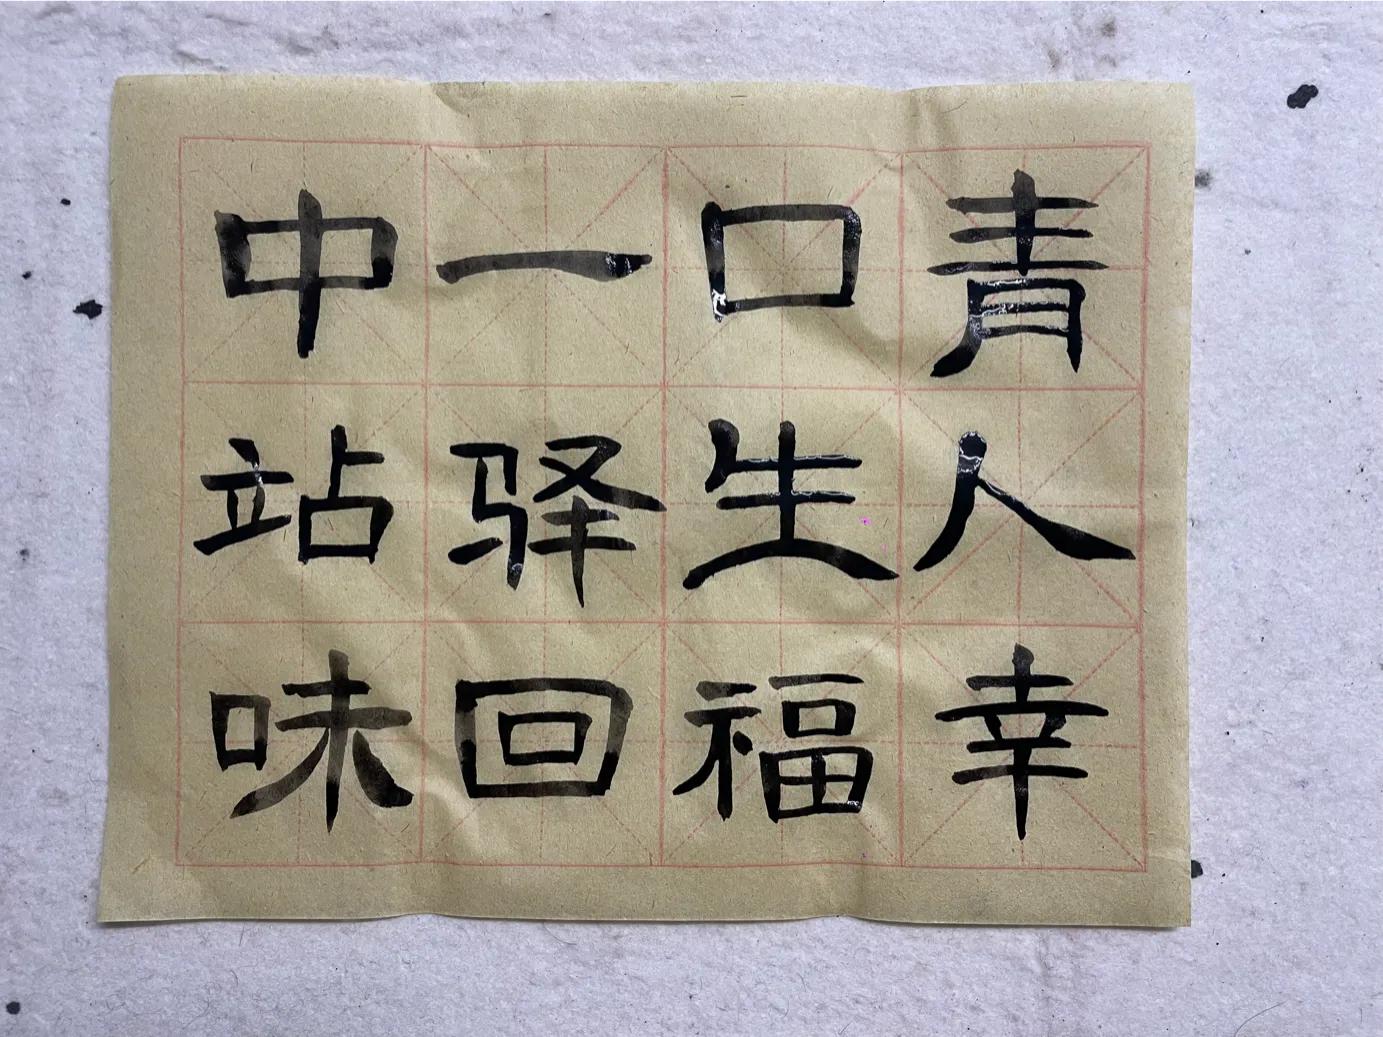 青口一中
人生驿站
幸福回味